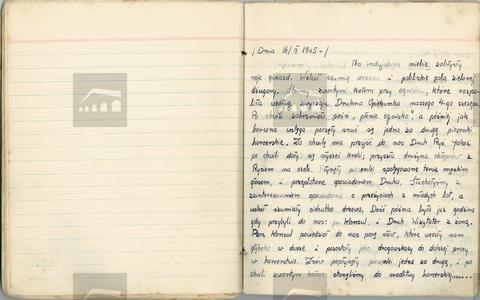 /Dnia 16/II 1945-/
Na indyjskim niebie zabłysły
roje gwiazd. Wokół szumią drzewa i pobliskie pola zielonej
dżungli. Stoimy zwartym kołem przy ognisku, które rozpa-
liła według zwyczaju Druhna Opiekunka naszego 4-go szczepu.
Po chwili zabrzmiała pieśń „płonie ognisko", a później jak
barwna wstęga poczęły snuć się jedna za drugą piosenki
harcerskie. Za chwilę ma przyjść do nas Druh Pyś. Jakoż
po chwili dały się słyszeć kroki; przyszła drużyna chłopców z
Pysiem na czele. Płynęły piosenki spotęgowane teraz męskim
głosem, i przeplatane opowiadaniem Druha. Słuchałyśmy z
zainteresowaniem opowiadania o przeżyciach z młodych lat, a
wokół szumiały cichutko drzewa. Dość późna była już godzina
gdy przybyli do nas: p. Konsul i Druh Wizytator z żoną.
Pan Konsul powiedział do nas parę słów, które weszły nam
głęboko w duszę i pozostały jako drogowskazy do dalszej pracy
w harcerstwie. Znów popłynęły piosenki jedna za drugą, i po
chwili zwartym kręgiem stanęłyśmy do modlitwy harcerskiej......